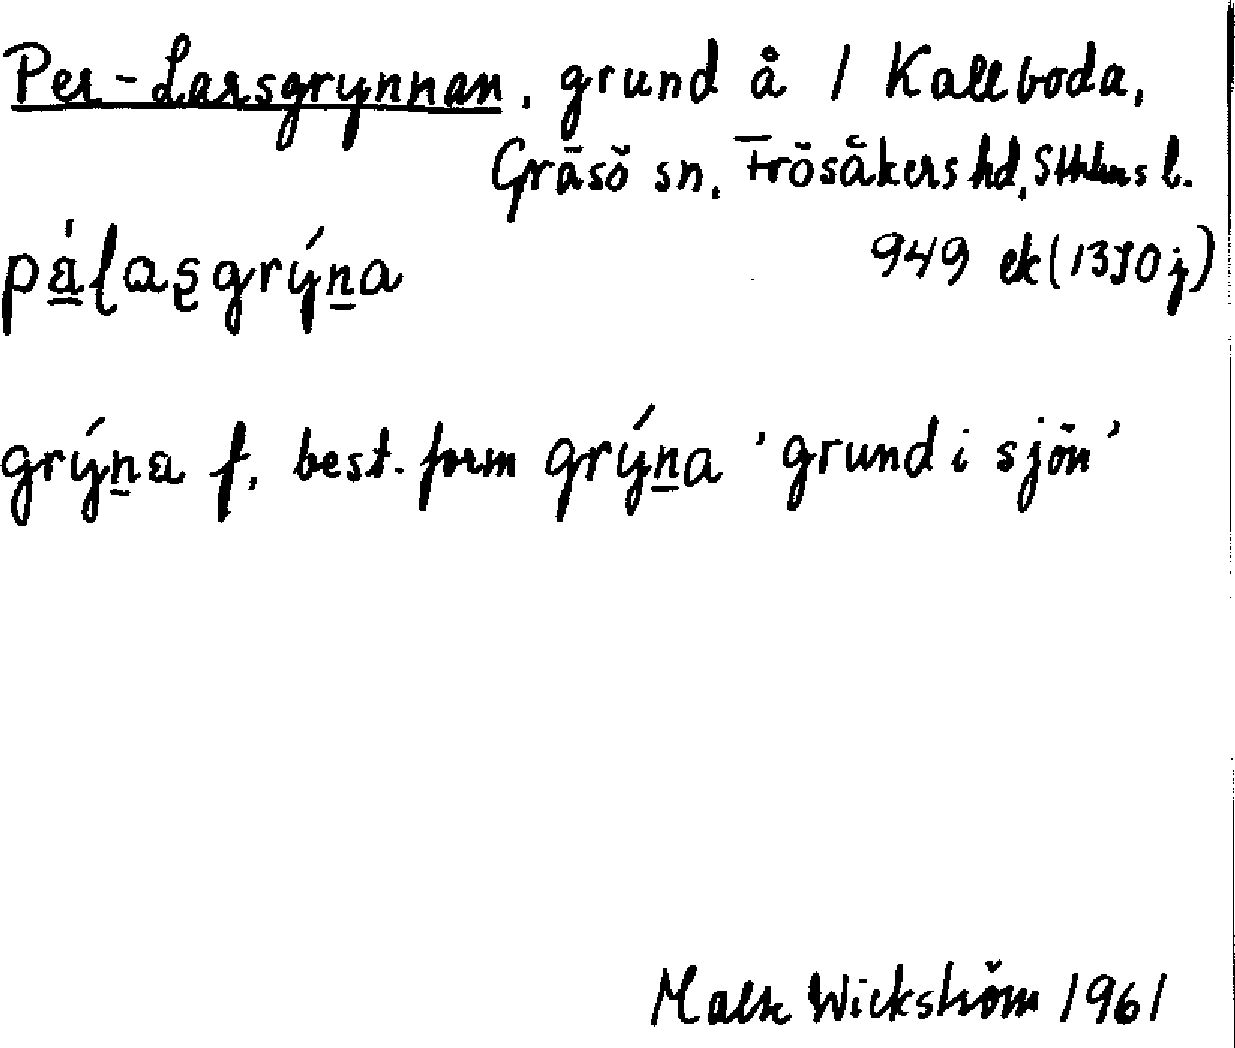 Per-Larsgrynnan, grund å 1 Kallboda,
Gräsö sn, Frösåkers hd, Sthlms l.
949 ek (13I0j)
grýn̲a f, best. form grýn̲a 'grund i sjön'
Malte Wickström 1961